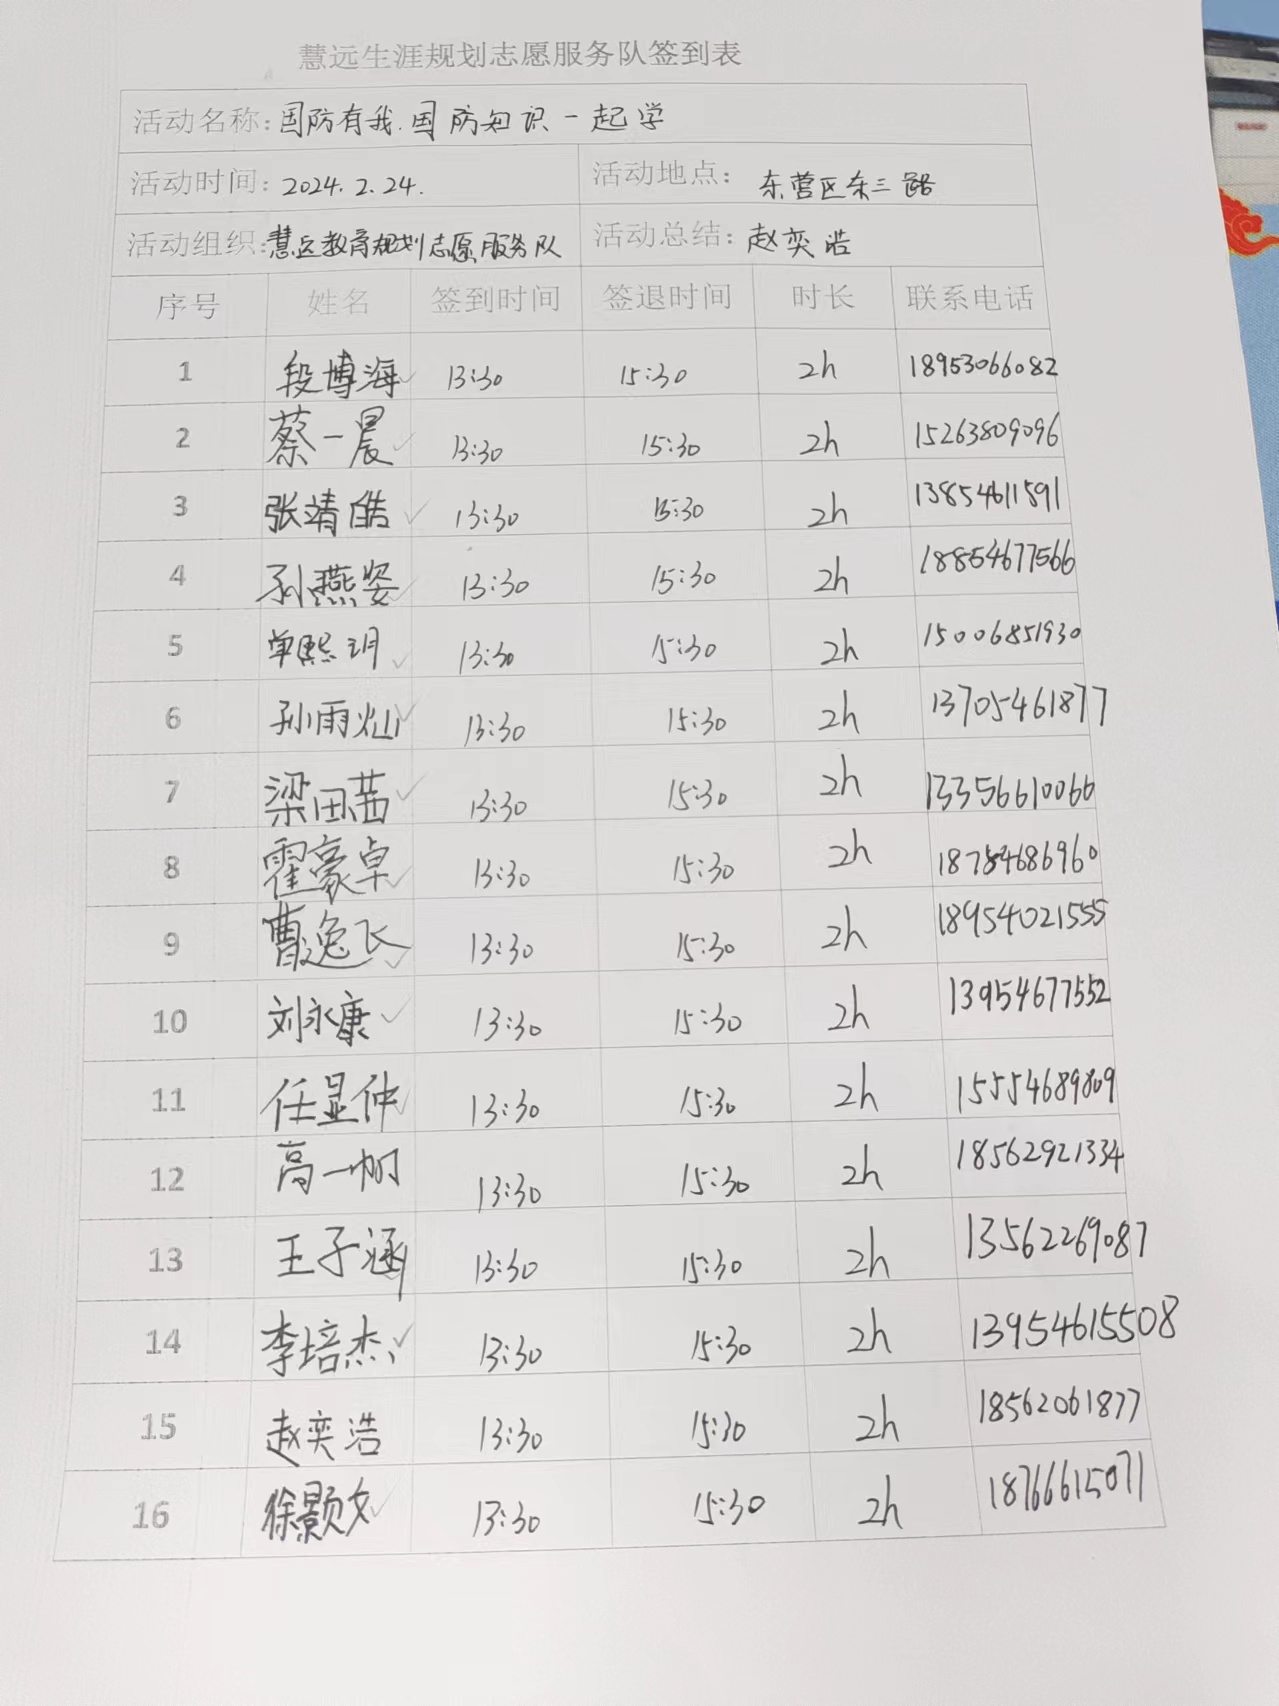 慧远生涯规划志愿服务队签到表
活动名称: 国防有我.国防知识一起学
活动时间: 2024.2.24. 活动地点: 东营区东三路
活动组织: 慧远教育规划志愿服务队 活动总结: 赵奕浩
序号 姓名 签到时间 签退时间 时长 联系电话
1 段博海 13:30 15:30 2h 18953066082
2 蔡一晨 13:30 15:30 2h 15263809096
3 张靖皓 13:30 15:30 2h 13854611591
4 孙燕姿 13:30 15:30 2h 18854677566
5 单熙玥 13:30 15:30 2h 15006851930
6 孙雨灿 13:30 15:30 2h 13705461877
7 梁田茜 13:30 15:30 2h 13356610066
8 霍豪卓 13:30 15:30 2h 18754686960
9 曹逸飞 13:30 15:30 2h 18954021555
10 刘永康 13:30 15:30 2h 13954677552
11 任显仲 13:30 15:30 2h 15554689809
12 高一帆 13:30 15:30 2h 18562921334
13 王子涵 13:30 15:30 2h 13562269087
14 李培杰 13:30 15:30 2h 13954615508
15 赵奕浩 13:30 15:30 2h 18562061877
16 徐颢文 13:30 15:30 2h 18766615071